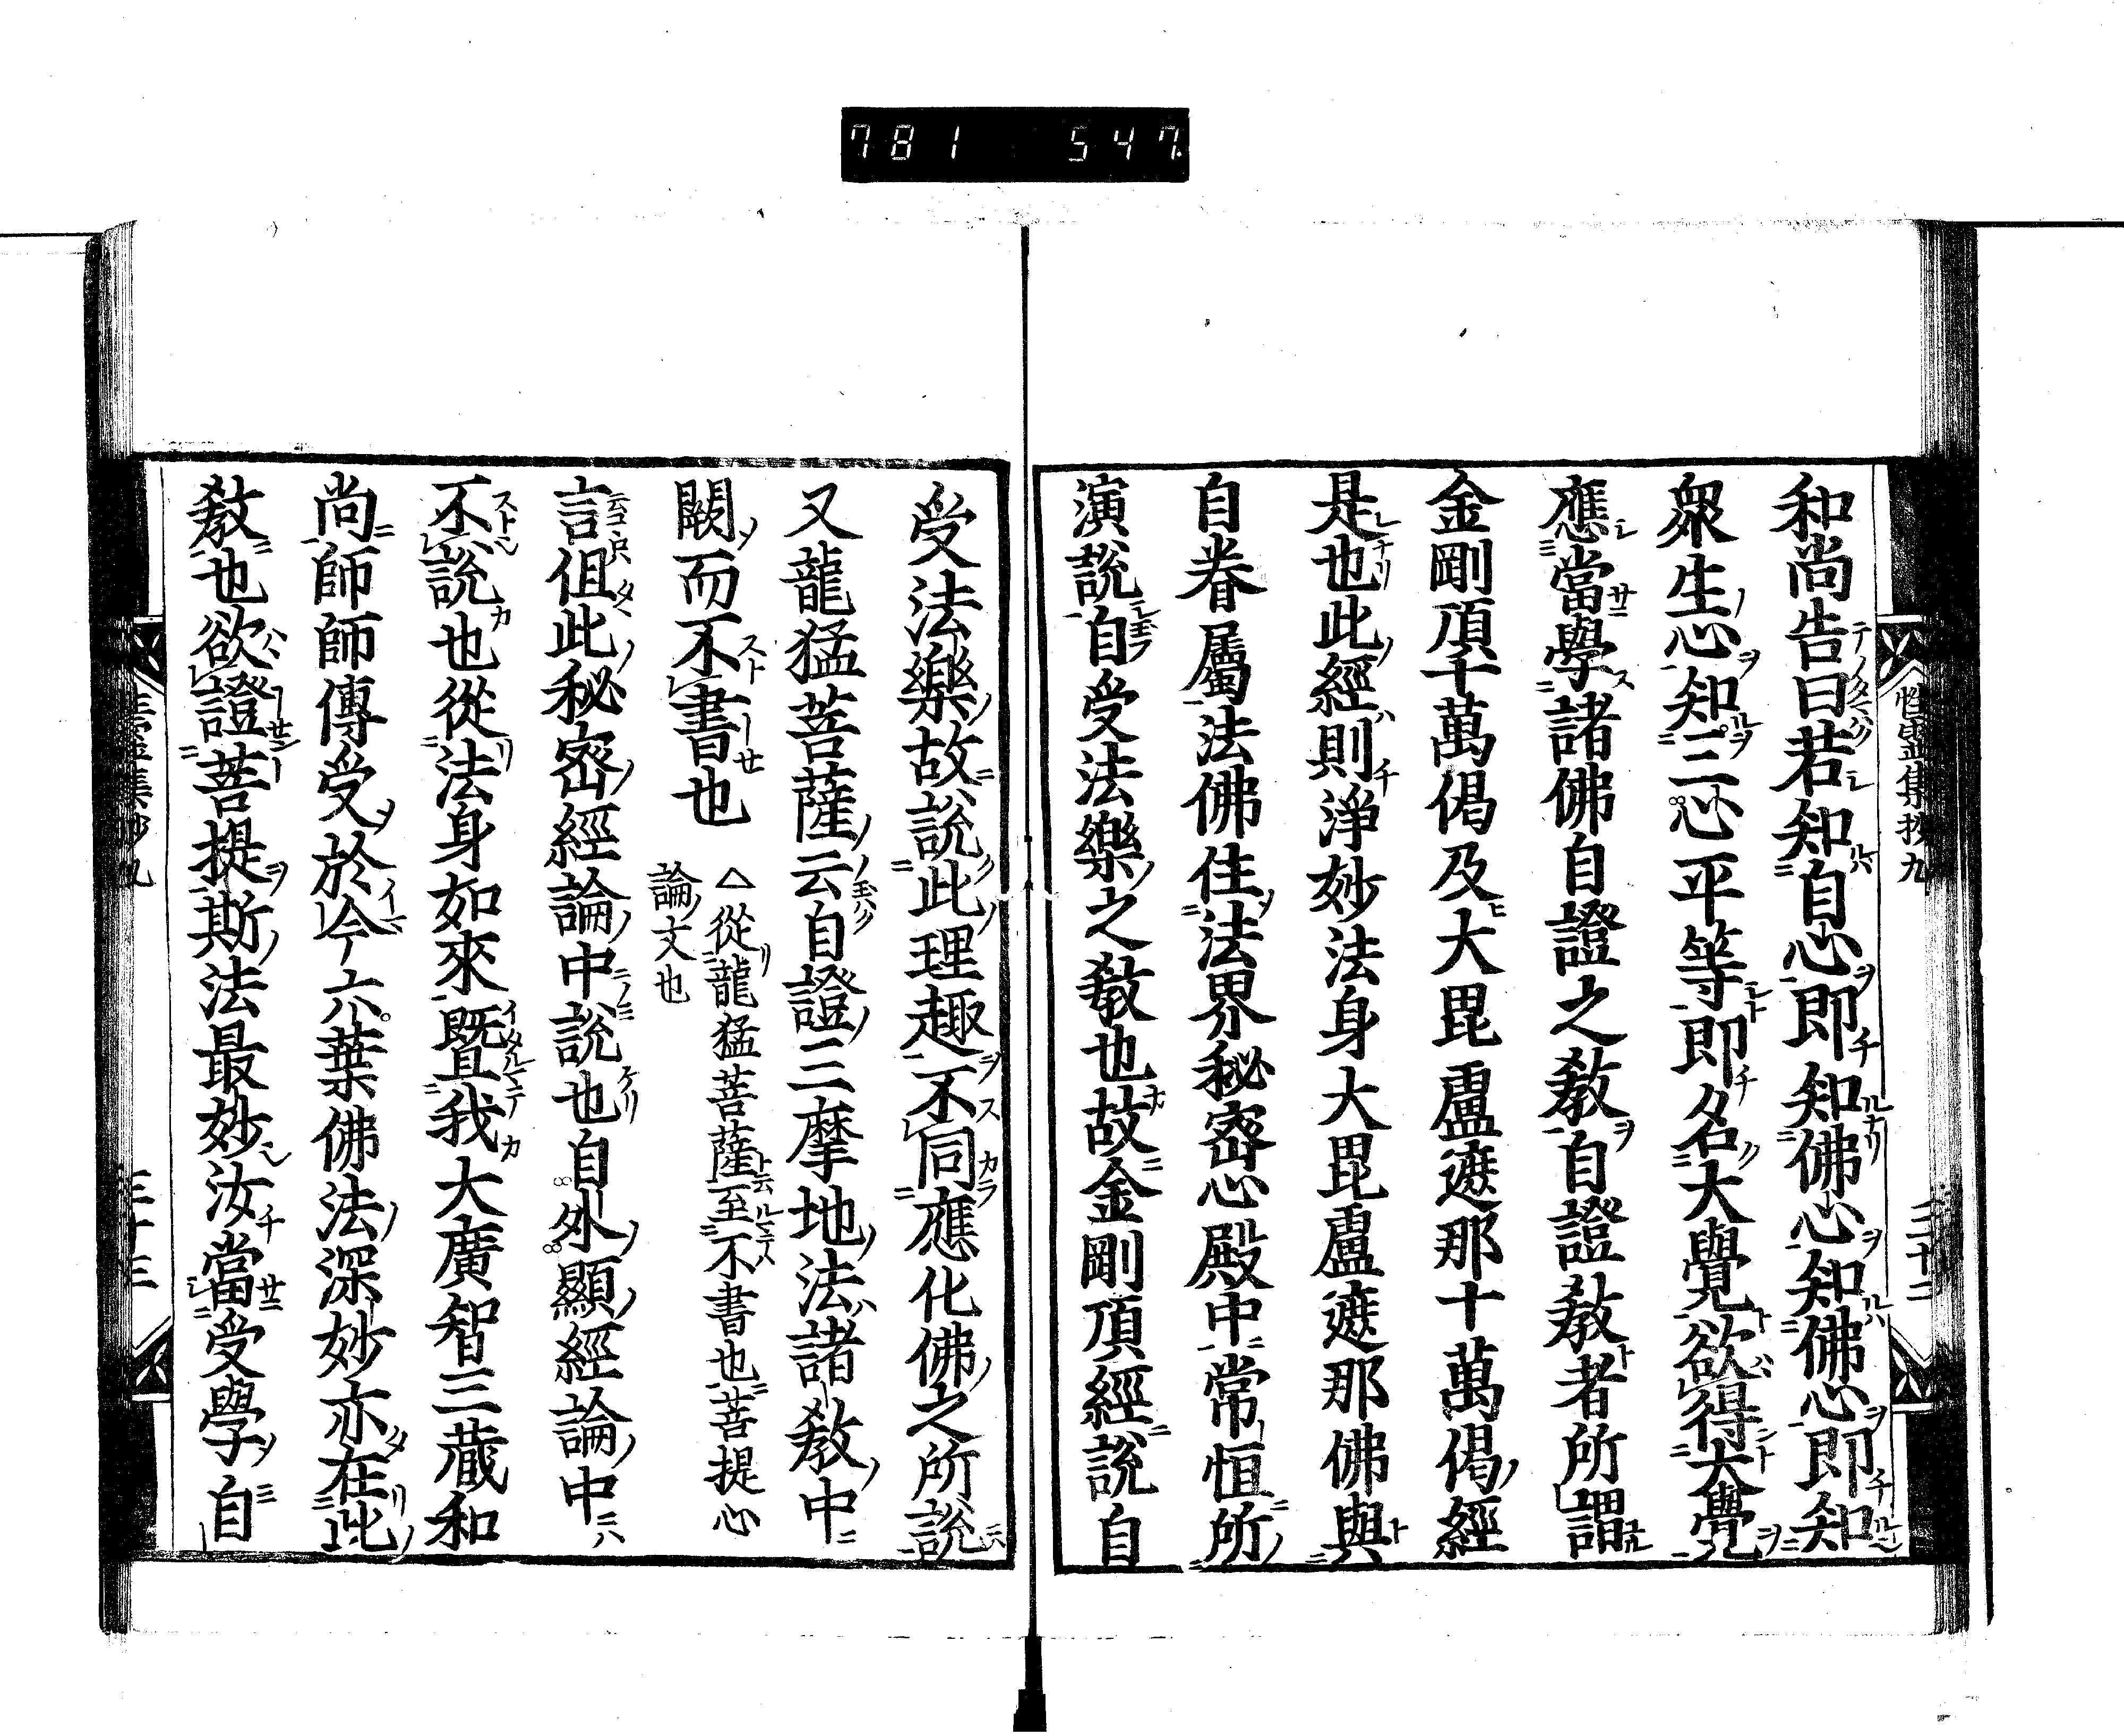 781 547
性靈集抄九
三十二
和尚告曰若知自心即知佛心知佛心即知
衆生心知三心平等即名大覺欲得大覺
應當學諸佛自證之教自證教者所謂
金剛頂十萬偈及大毘盧遮那十萬偈經
是也此經則淨妙法身大毘盧遮那佛與
自眷屬法佛住法界秘密心殿中常恒所
演説自受法樂之教也故金剛頂經説自
受法樂故説此理趣不同應化佛之所説
又龍猛菩薩云自證三摩地法諸教中
闕而不書也
△從龍猛菩薩至不書也菩提心
論文也
言但此秘密經論中説也自外顯經論中
不説也從法身如來既曁我大廣智三藏和
尚師師傳受於今六葉佛法深妙亦在此
教也欲證菩提斯法最妙汝當受學自
三十三